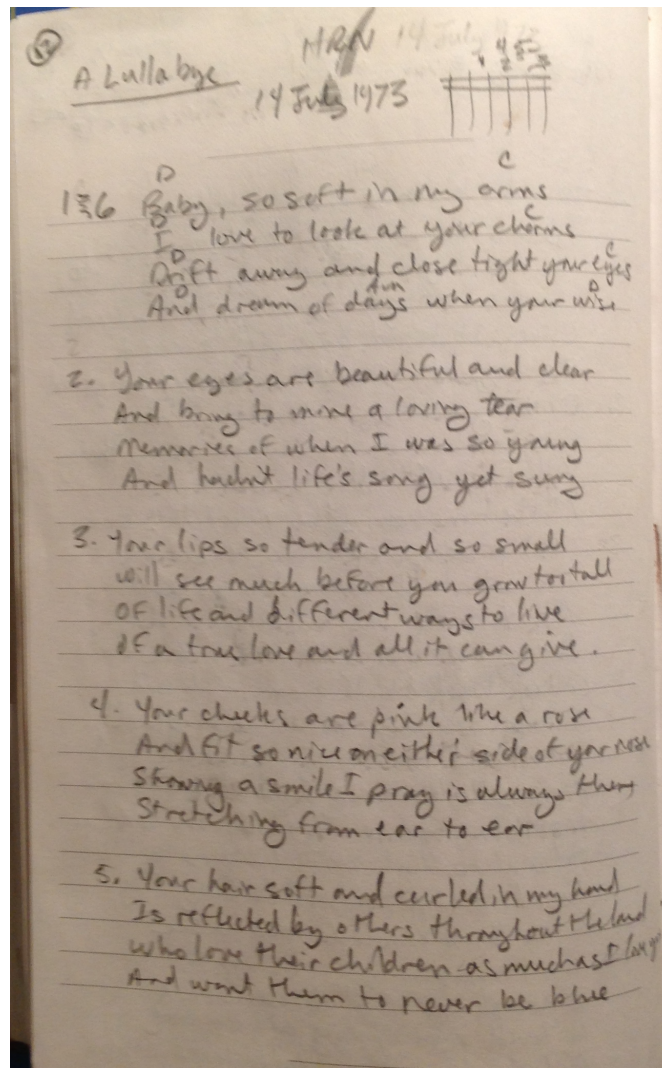 12
HRN 14 July
A Lullabye
14 July 1973
D C
1 & 6 Baby, so soft in my arms
D C
I love to look at your charms
D C
Drift away and close tight your eyes
D Am D
And dream of days when your wise
2. Your eyes are beautiful and clear
And bring to mine a loving tear
Memories of when I was so young
And hadn't life's song yet sung
3. Your lips so tender and so small
will see much before you grow too tall
Of life and different ways to live
Of a true love and all it can give.
4. Your cheeks are pink like a rose
And fit so nice on either side of your nose
Showing a smile I pray is always there
Stretching from ear to ear
5. Your hair soft and curled in my hand
Is reflected by others throughout the land
who love their children as much as I love
And want them to never be blue